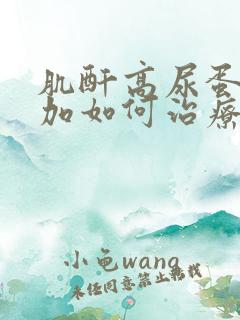 肌酐高尿蛋
加如何治疗
小龟wang
未经同意禁止转载